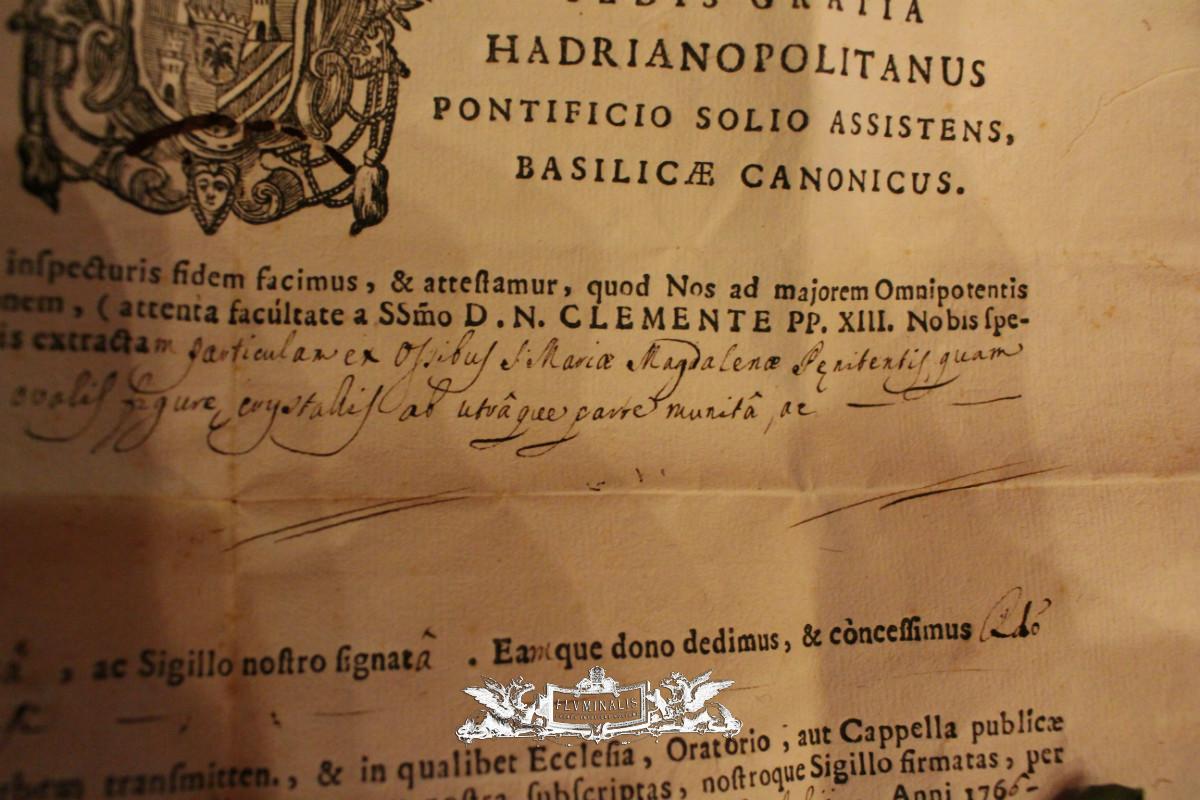 SEDIS GRATIA
HADRIANOPOLITANUS
PONTIFICIO SOLIO ASSISTENS,
BASILICÆ CANONICUS.
inſpecturis fidem facimus, & atteſtamur, quod Nos ad majorem Omnipotentis
nem, ( attenta facúltate a SSm̃o D. N. CLEMENTE PP. XIII. Nobis ſpe-
is extractam particulam ex Ossibus S. Mariæ Magdalenæ Penitentis quam
ovalis figure, crystallis ab utrâque parte munitâ, ac
, ac Sigillo noſtro ſignatâ . Eamque dono dedimus, & còncеſſimus
tranſmitten., & in qualibet Eccleſia, Oratorio, aut Cappella publicæ
ſubſcriptas, noſtroque Sigillo firmatas, per
Anni 1766-
FLVMINALIS